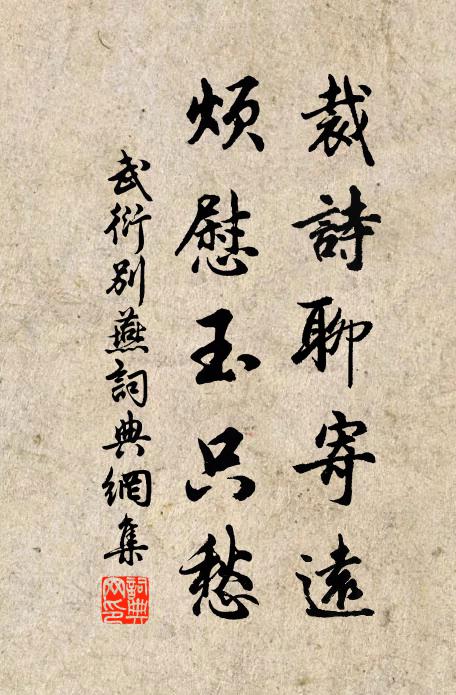 裁詩聊寄遠
煩慰玉只愁
武衍別燕詞典網集
詞典網印